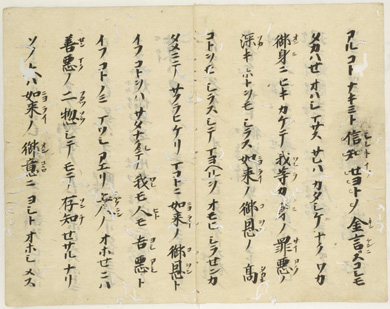 アルコトナキミト信知セヨトイフ金言ニスコシモ
タカハせオハシマサスサレハカタシケナクワカ
御身ニヒキカケテ我等カ身ノ罪悪ノ
深キホトヲモシラス如来ノ御恩ノ高
コトヲモシラスシテマヨヘルヲオモヒシラせンカ
タメニテサフラヒケリマコトニ如来ノ御恩ト
イフコトヲハサタナクシテ我モ人モ吉悪ト
イフコトヲノミマウシアエリ聖人ノオホせニハ
善悪ノ二惣シテモテ存知せサルナリ
ソノユヘハ如来ノ御意ニヨシトオホシメス